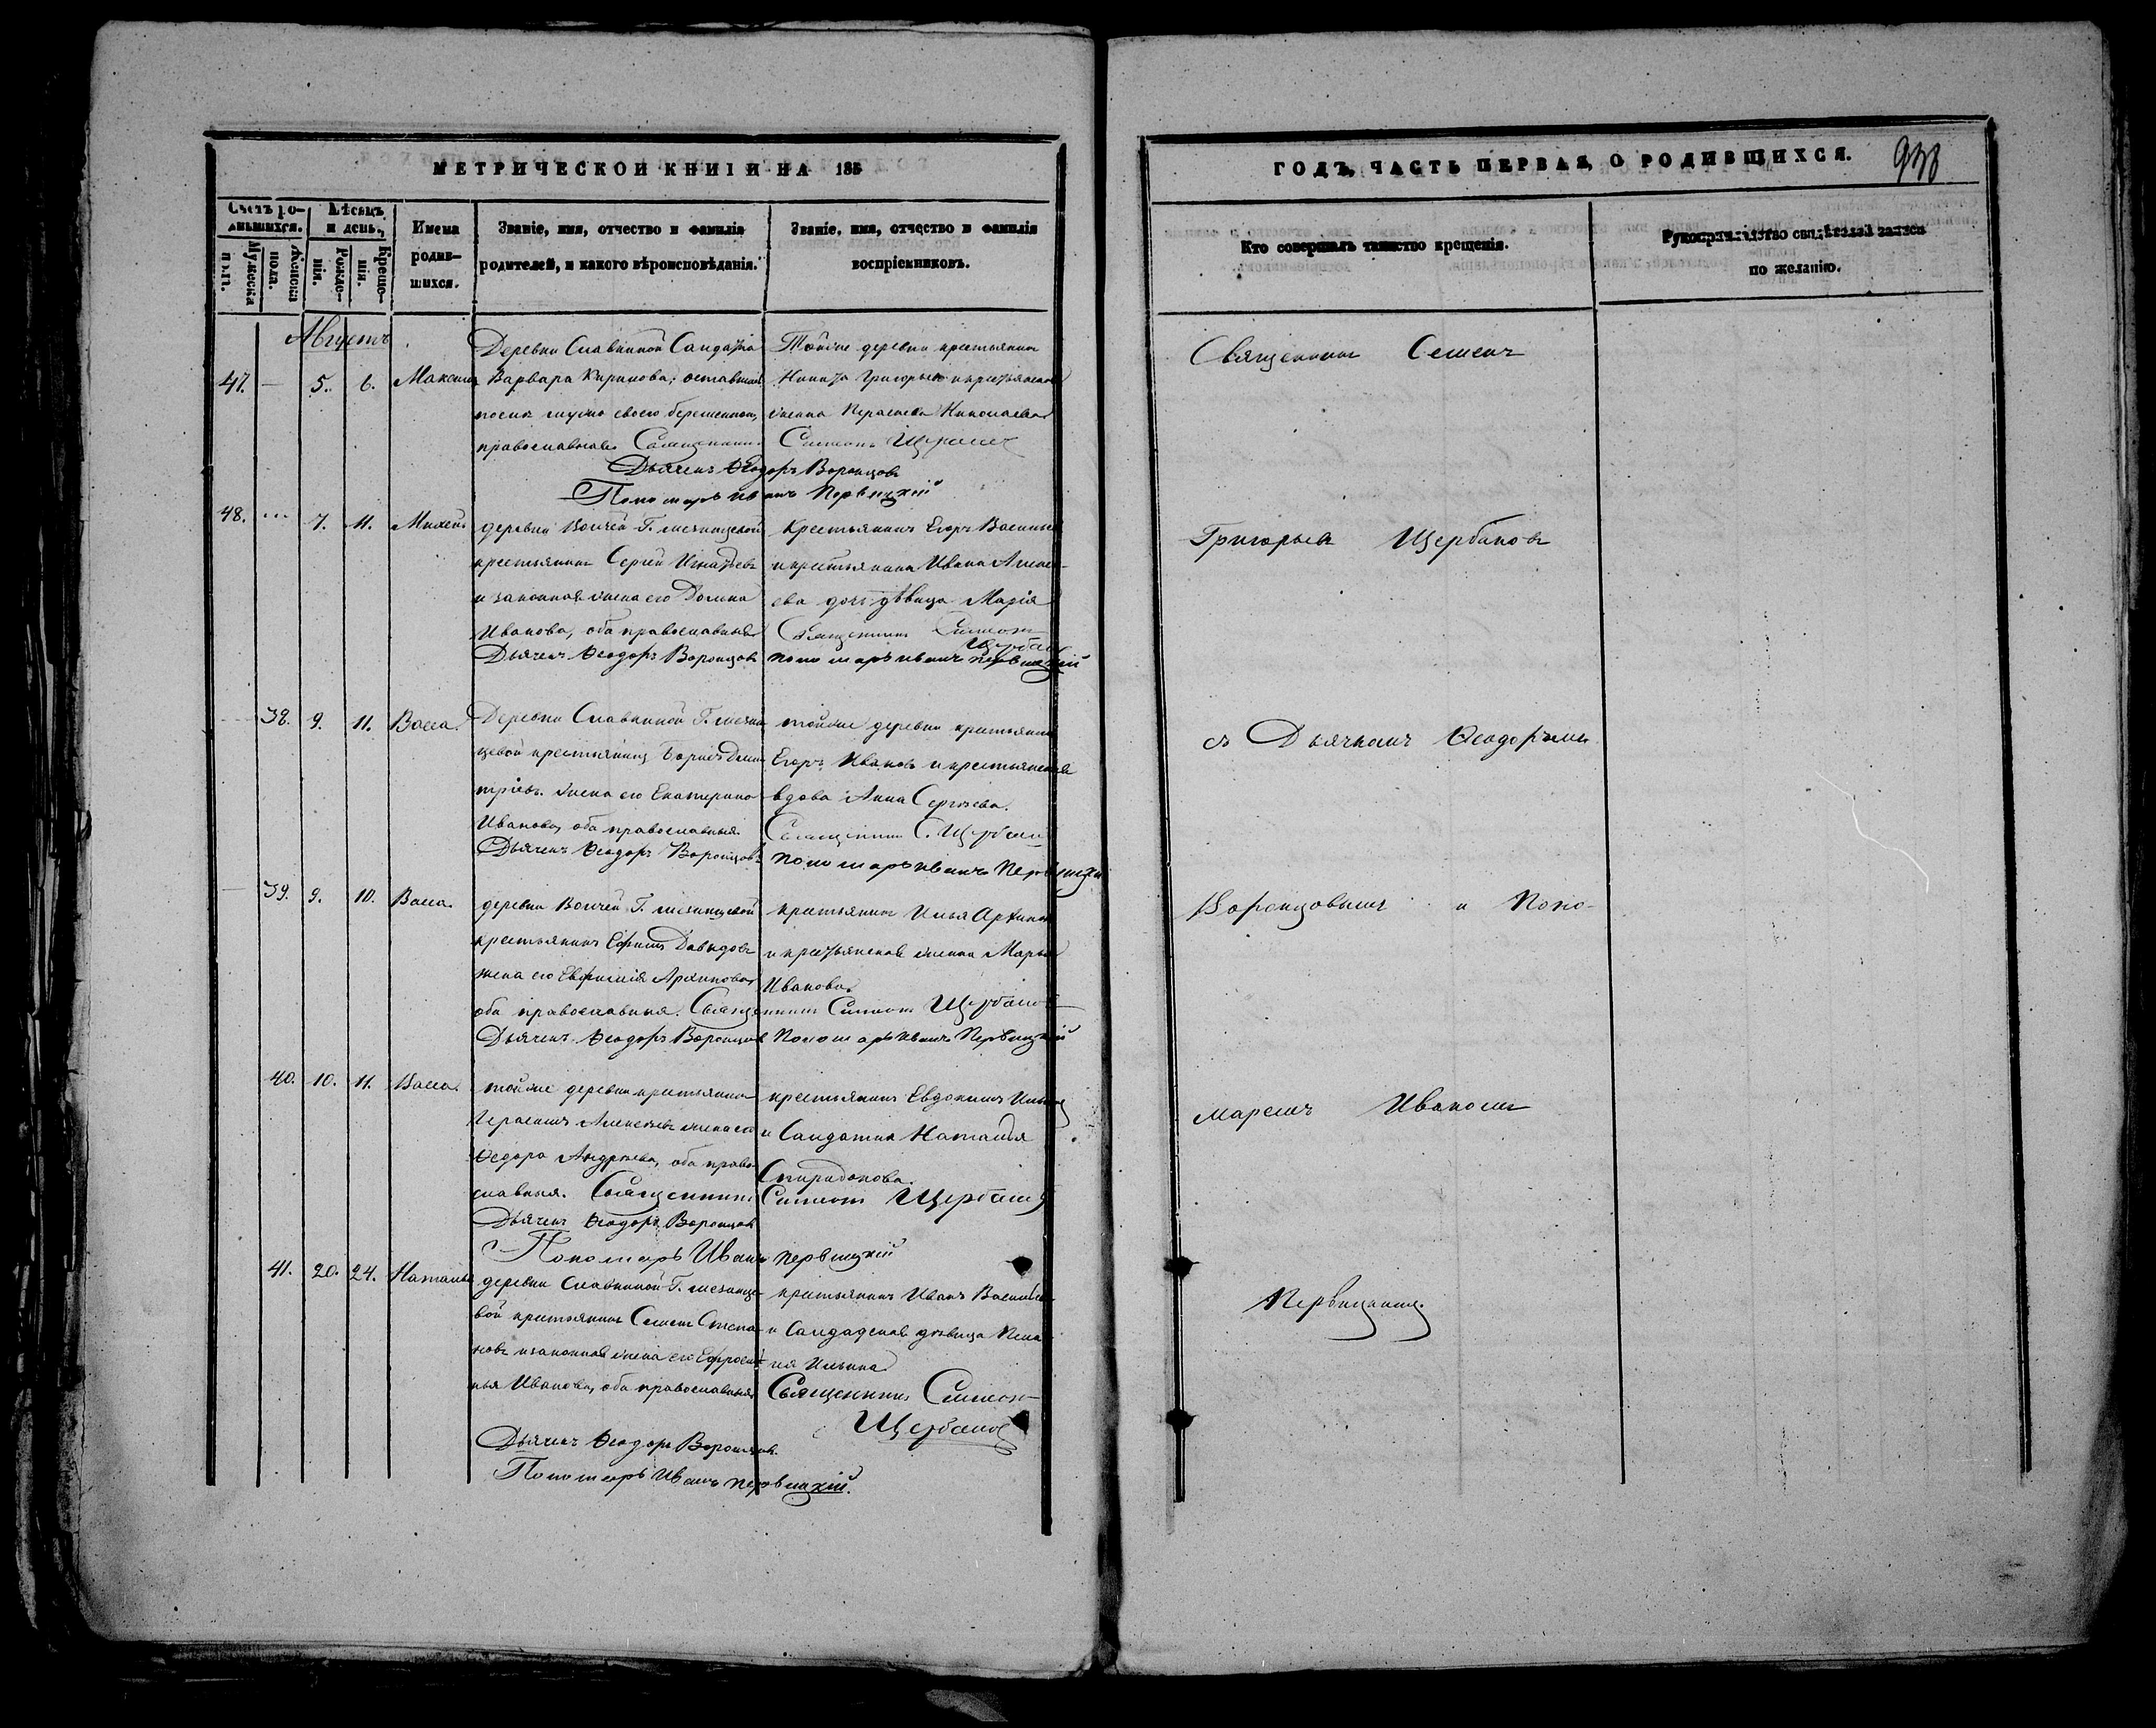 МЕТРИЧЕСКОЙ КНИГИ НА 185
Счетъ ро-
дившихся.
Мѣсяцъ
и день.
Мужеска
пола.
Женска
пола.
Рожде-
нія.
Креще-
нія.
Имена
родив-
шихся.
Званіе, имя, отчество и фамилія
родителей, и какого вѣроисповѣданія.
Званіе, имя, отчество и фамилія
воспріемниковъ.
Августъ
47. — 5. 6. Максимъ
Деревни Славкиной Салдатка
Варвара Кирикова, оставшаяся
послѣ мужа своего беременною,
православная. Священникъ
Тойже деревни крестьянинъ
Никита Григорьевъ и крестьянская
жена Парасковья Николаева
Симеонъ Щербаковъ
Дьячекъ Ѳеодоръ Воронцовъ
Пономарь Иванъ Первицкій
48. ... 7. 11. Михей
деревни Волчей Г. мѣзинцевой
крестьянинъ Сергѣй Игнатьевъ
и законная жена его Домна
Иванова, оба православныя
Дьячекъ Ѳеодоръ Воронцовъ
Крестьянинъ Егоръ Васильевъ
и крестьянина Ивана Алексѣ-
ева дочь дѣвица Марія
Священникъ Симеонъ
Щербаковъ
пономарь иванъ первицкій
38. 9. 11. Васса.
Деревни Славкиной Г. мѣзин
цевой крестьянинъ Борисъ Дми
тріевъ. жена его Екатерина
Иванова, оба православныя.
Дьячекъ Ѳеодоръ Воронцовъ
тойже деревни крестьянинъ
Егоръ Ивановъ и крестьянская
вдова Анна Сергѣева.
Священникъ С. Щербаковъ
пономарь иванъ Первицкій
39. 9. 10. Васса.
деревни Волчей Г. мѣзинцевой
крестьянинъ Ефимъ Давыдовъ
жена его Евфимія Архипова,
оба православныя. Священникъ Симеонъ Щербаковъ
крестьянинъ Илья Архиповъ
и крестьянская жена Марья
Иванова.
Дьячекъ Ѳеодоръ Воронцовъ Пономарь Иванъ Первицкій
40. 10. 11. Васса.
тойже деревни крестьянинъ
Герасимъ Алексѣевъ жена его
Ѳедора Андреева, оба право
славныя. Священникъ
Дьячекъ Ѳеодоръ Воронцовъ
крестьянинъ Евдокимъ Ильинъ
и Салдатка Наталья
Спиридонова.
Симеонъ Щербаковъ
Пономарь Иванъ Первицкій
41. 20. 24. Наталья
деревни Славкиной Г. мѣзинце-
вой крестьянинъ Семенъ Степа-
новъ и законная жена его Ефроси-
нья Иванова, оба православныя
крестьянинъ Иванъ Васильевъ
и Салдадская дѣвица Пела
гея Ильина
Священникъ Симеонъ
Щербаковъ
Дьячекъ Ѳеодоръ Воронцовъ.
Пономарь Иванъ Первицкій.
ГОДЪ, ЧАСТЬ ПЕРВАЯ, О РОДИВШИХСЯ.
938
Кто совершалъ таинство крещенія.
Рукоприкладство свидѣтелей записи
по желанію.
Священникъ Семенъ
Григорьевъ Щербаковъ
съ Дьячкомъ Ѳеодоромъ
Воронцовымъ и Поно-
маремъ Иваномъ
Первицкимъ.